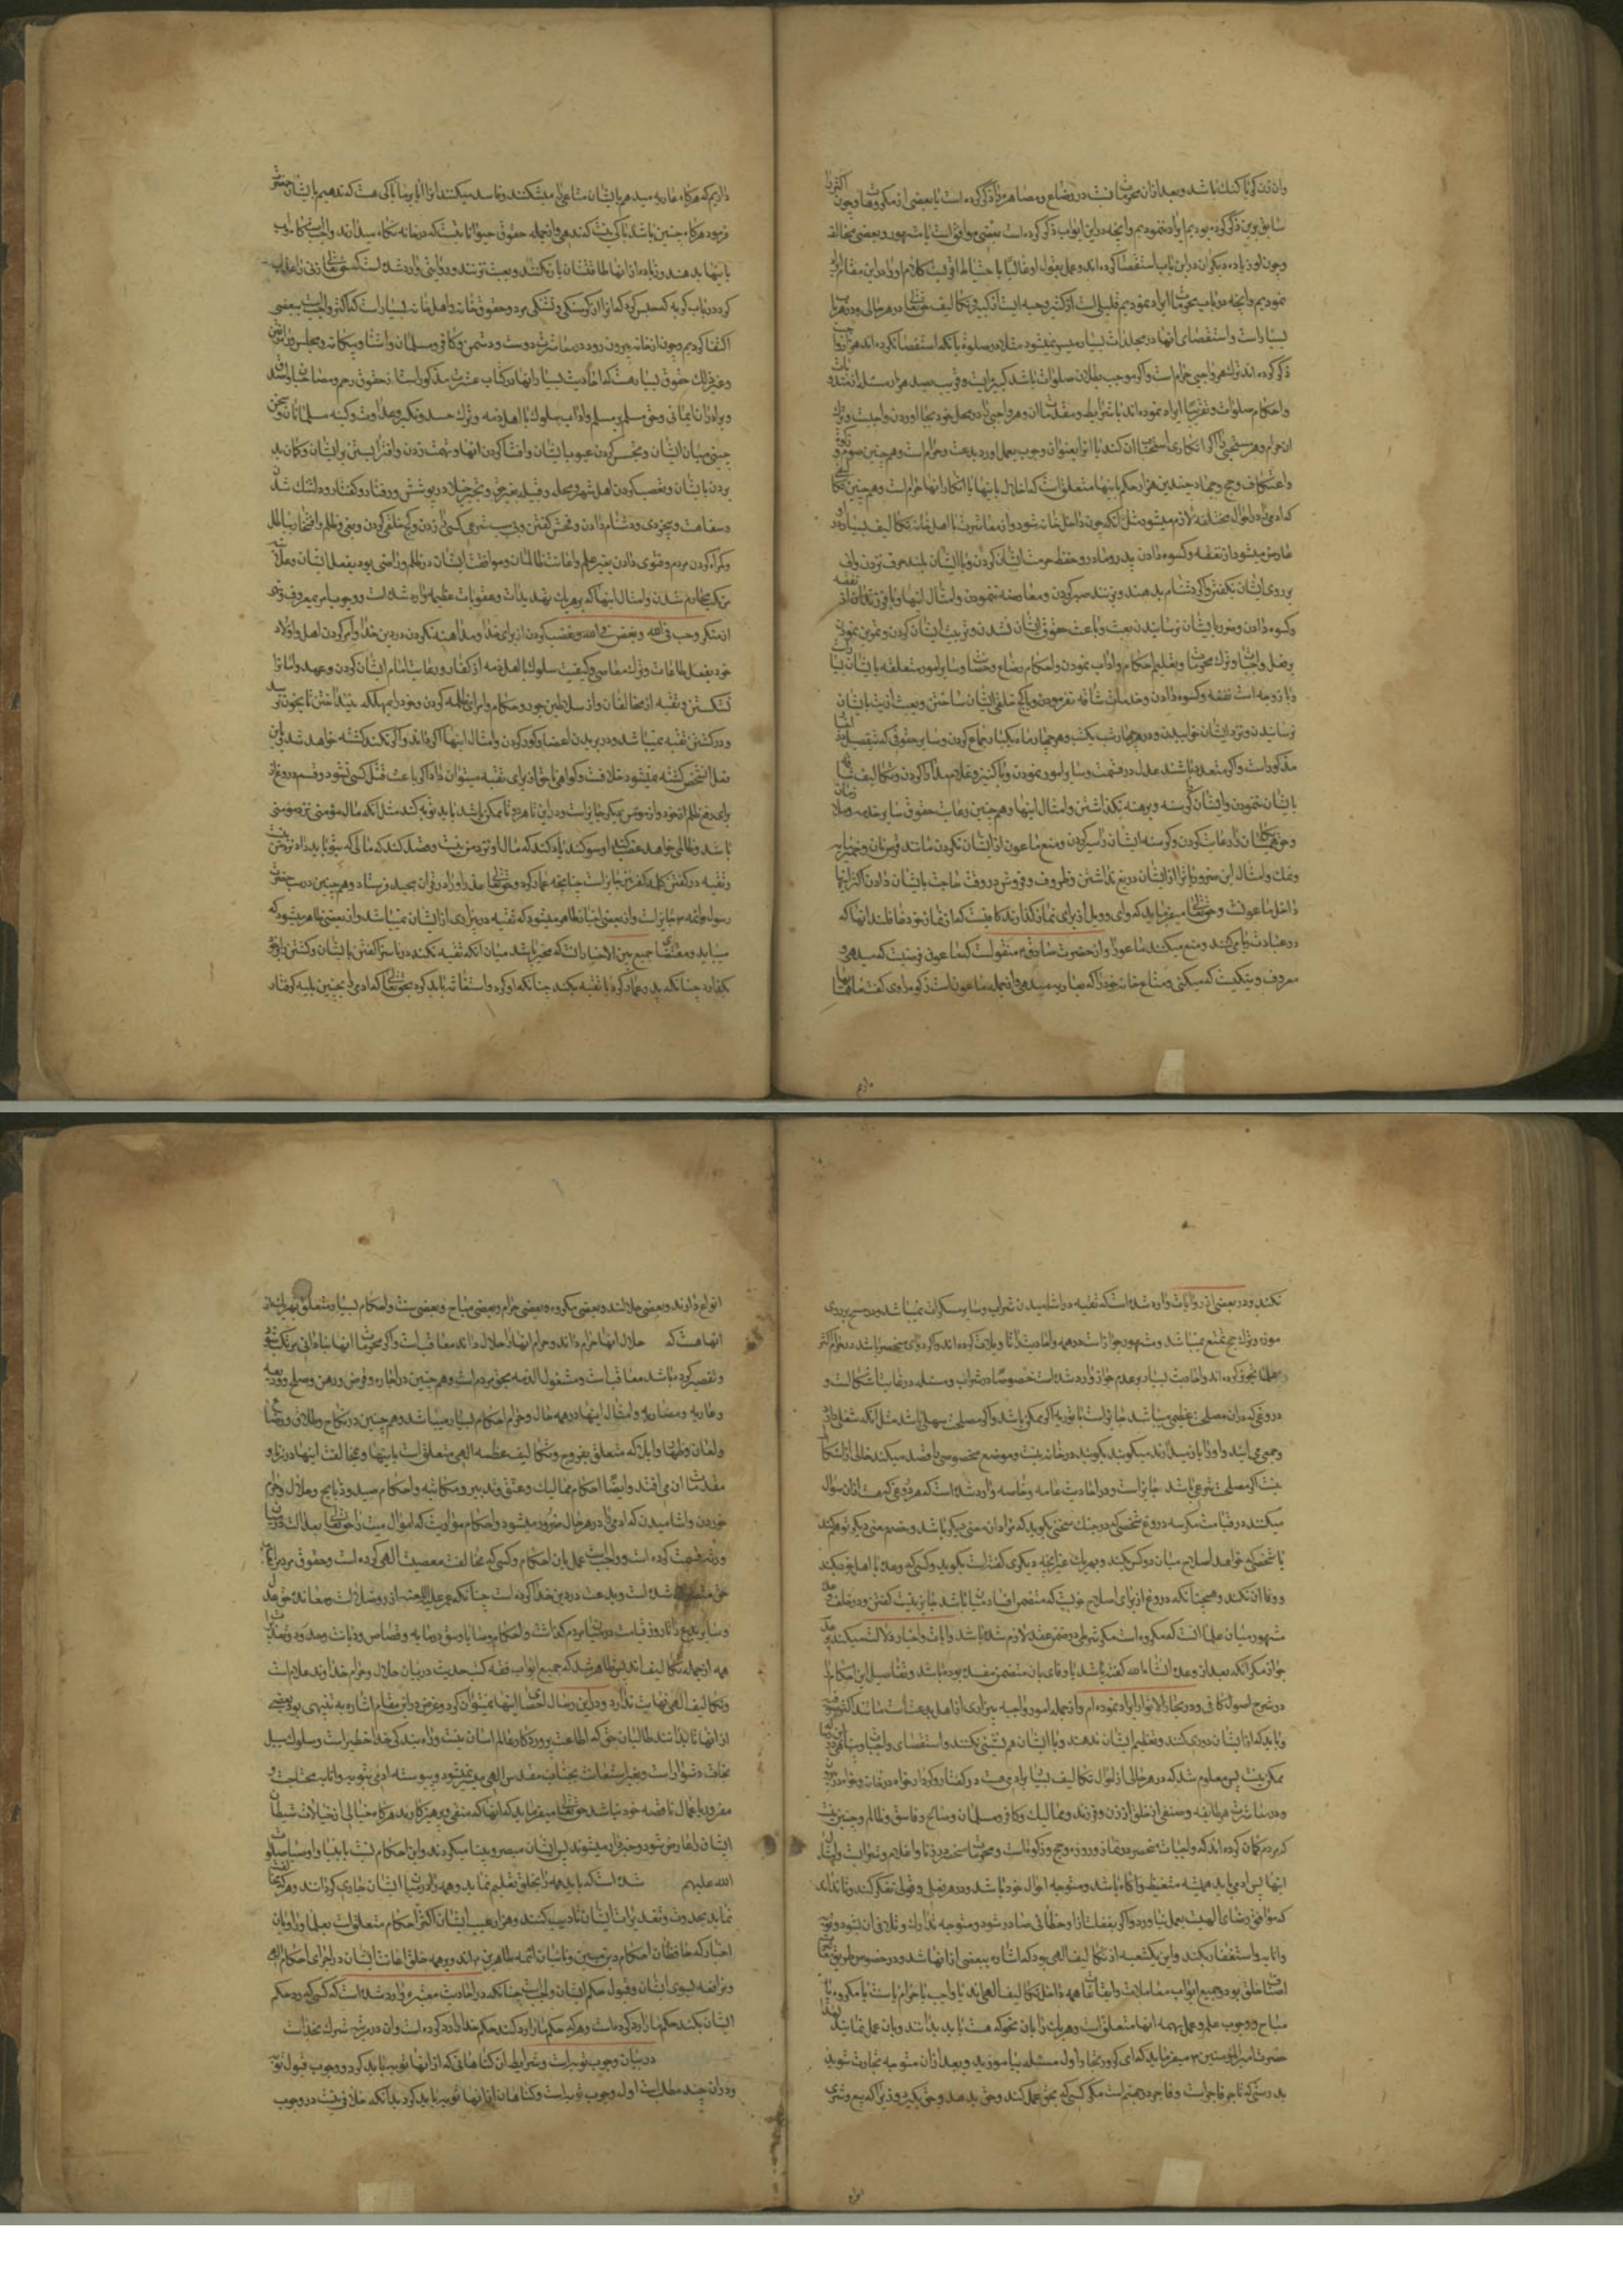 وان زن کو یا کنک باشد و بعد ازان محرمات
سابق برین ذکر کرده بودیم ایراد ننمودیم وآنچه دراین ابواب ذکر کرده است بعضی موافق است با مشهور و بعضی مخالف
و چون او زیاده دیکران در این باب استقصا کرده اند و عمل بقول او غالبا با احتیاط اوفق است کلام او را در این مقام ایراد
نمودیم وآنچه در باب محرمات ایراد نمودیم قلیلی است از کثیر و حبه ایست از کبیر و تکالیف حق تعالی در هر حالی و در هر باب
بسیار است و استقصای انها در مجلدات بسیار میسر نمیشود مثلا در صلوة با آنکه استقصا نکرده اند هزار واجب
ذکر کرده اند و ترک هر واجبی حرام است و اکر موجب بطلان صلوات باشد کبیره است و قریب بصد هزار مسئله از
واحکام صلوات و تقریبا ایراد نموده اند با شرایط و مقدمات ان و هر واجبی را در محل خود بجا آوردن واجبست و ترک
ان حرام و هر سنتی را اکر انکار استحباب ان کند یا انرا بعنوان وجوب بعمل اورد بدعت و حرام است و هم چنین صوم و زکوة
واعتکاف و حج و جهاد چندین هزار حکم باینها متعلق است که اخلال باینها یا انکار انها حرام است و هم چنین
که ادمی را در احوال مختلفه لازم میشود مثل آنکه چون داخل خانه شود و از معاشرت با اهل خانه تکالیف بسیار
عارض میشود از نفقه و کسوه دادن پدر و مادر و حفظ حرمت ایشان کردن و با ایشان بلند حرف نزدن و اف
بر روی ایشان نکفتن و اکر دشنام بدهند و بزنند صبر کردن و معارضه ننمودن و امثال اینها و با فرزندان از نفقه
و کسوه دادن و ضرر بایشان نرسانیدن بعبث و باعث حقوق ایشان نشدن و تربیت ایشان کردن و تمرین نمودن
بفعل واجبات و ترک محرمات و تعلیم احکام و اداب نمودن و احکام رضاع و حضانت و سایر امور متعلقه بایشان
و با زوجه است نفقه و کسوه دادن و خدمات شاقه نفرمودن و با کج خلقی ایشان ساختن و بعبث اذیت بایشان
نرسانیدن و نزد ایشان خوابیدن و در چهار شب یکشب و هر چهار ماه یکبار جماع کردن و سایر حقوق که بتفصیل
مذکور است و اکر متعدد باشند عدل در قسمت و سایر امور نمودن و با کنیز و غلام مدارا کردن و تکالیف شاقه
بایشان ننمودن و ایشان را کرسنه و برهنه نکذاشتن و امثال اینها و هم چنین رعایت حقوق سایر خدمه و ملازمان
و حق همسایکان را رعایت کردن و کرسنه ایشان را سیر کردن و منع ماعون از ایشان نکردن مانند قرص نان و خمیرمایه
و نمک و امثال این ضروریاترا از ایشان دریغ نداشتن و ظروف و فروش در وقت حاجت بایشان دادن اکثر اینها
داخل ماعونست و حق تعالی میفرماید که وای و ویل از برای نماز کذارندکانیست که از نماز خود غافلند انها که
در عبادت ریا می کنند و منع میکنند ماعون را و از حضرت صادق ع منقولست که ماعون قرضیست که میدهی و
معروف و نیکیست که میکنی و متاع خانه خود را که بعاریه میدهی و از جمله ماعونست زکوة راوی کفت
دادیم که هرکاه عاریه میدهیم بایشان متاعی را میشکنند و فاسد میکنند ایا بر ما باکی هست که ندهیم بایشان حضرت
فرمود هرکاه چنین باشد باکی نیست که ندهی و از جمله حقوق حیوانات است که در خانه نکاه میدارند واجبست که آب
بانها بدهند و زیاده از انها طاقتشان بار نکنند و بعبث نزنند و روایتی وارد شده است که حق تعالی زنی را عذاب
کرد در باب کربه که حبس کرده که انرا از کرسنکی و تشنکی مرد و حقوق خانه و اهل خانه بسیار است که اکثر واجبست ببعضی
اکتفا کردیم و چون از خانه بیرون رود در معاشرت دوست و دشمن و کافر و مسلمان و اشنا و بیکانه و مجلس
و غیر ذلک حقوق بسیار هست که احادیث بسیار انها در کتاب عشرت مذکور است از حقوق رحم و مصاحبان
و برادران ایمانی و حق مسلم بر مسلم و اداب سلوک با اهل ذمه و ترک حسد و تکبر و عداوت و کینه مسلمانان و سخن
چینی میان ایشان و تجسس کردن عیوب ایشان و افشا کردن انها و تهمت زدن و افترا بستن بر ایشان و کمان بد
بردن بایشان و تعصب کردن اهل شهر و محله و قبیله بغیر حق و تجبر و خیلا در پوشش و رفتار و کفتار و دلتنک شدن
و سفاهت و بیخردی و دشنام دادن و فحش کفتن و بی سبب شرعی کسی را زدن و کج خلقی کردن و بغی و ظلم و افتخار بباطل
و کمراه کردن مردم و فتوی دادن بغیر علم و اعانت ظالمان و موافقت ایشان در ظلم و راضی بودن بفعل ایشان و
مرتکب محارم شدن و امثال اینها که بر هر یک تهدیدات و عقوبات عظیمه وارد شده است و وجوب امر بمعروف و نهی
از منکر و حب فی الله و بغض فی الله و غضب کردن از برای خدا و مداهنه نکردن در دین خدا و امر کردن اهل و اولاد
خود بفعل طاعات و ترک معاصی و کیفیت سلوک با اهل ذمه از کفار و رعایت امام ایشان کردن و عهد و امانرا
نشکستن و تقیه از مخالفان و از سلاطین جور و حکام و امرای ظلمه کردن و خود را بمهلکه نینداختن تا بخون نرسد
و در کشتن تقیه نمیباشد و در بریدن اعضا و کور کردن و امثال اینها اکر داند و اکر نکند کشته خواهد شد و باین
فعل انشخص کشته نمیشود خلافست و کواهی ناحق از برای تقیه میتوان داد اکر باعث قتل کسی نشود و قسم دروغ از
برای دفع ظلم از خود و از مومن دیکر جایز است و در این تا هر دو تا ممکن باشد باید توریه کند مثل انکه مال مؤمنی نزد مومنی
باشد و ظالمی خواهد غصب کند و او سوکند یاد کند که مال او نزد من نیست و قصد کند که مالی که بتو باید داد نزد من
و تقیه در کفتن کلمه کفر نیز جایز است چنانچه عمار کرد و حق تعالی عذر او را در قران مجید فرستاد و هم چنین در سب حضرت
رسول و ائمه ع جایز است و از بعضی اخبار ظاهر میشود که تقیه در بیزاری از ایشان نمیباشد و از بعضی ظاهر میشود که
میباید و مقتضای جمع بین الاخبار انست که مخیر باشد میان انکه تقیه نکند در ناسزا کفتن بایشان و کشتن
بکفار چنانکه پدر عمار کرد یا تقیه بکند چنانکه او کرد و استغاثه باید کرد بحق تعالی که ادمی را بچنین بلیه کرفتار
نکند و در بعضی از روایات وارد شده است که تقیه در اشامیدن شراب و سایر مسکرات نمیباشد و در مسح بر روی
موزه و ترک حج تمتع نمیباشد و مشهور جواز است در همه و احادیث را تاویلات کرده اند و اکر دوای منحصر باشد در حرام اکثر
علما تجویز کرده اند و احادیث بسیار بر عدم جواز وارد شده است خصوصا در شراب و مسئله در غایت اشکالست و
دروغی که دران مصلحت عظیمی میباشد جایز است با توریه اکر ممکن باشد و اکر مصلحت سهلی باشد مثل آنکه شغلی دارد
و جمعی می ایند و او را باز میدارند میکوید بکوئید در خانه نیست و موضع مخصوصی را قصد میکند خالی از اشکال
نیست اکر مصلحت شرعی باشد جایز است و در احادیث عامه و خاصه وارد شده است که هر دروغی که هست ازان سؤال
میکنند در قیامت مکر سه دروغ شخصی که در جنک سخنی بکوید که مراد ان معنی دیکر باشد و خصم معنی دیکر توهم کند
یا شخصی که خواهد اصلاح میان دو کس بکند و بهر یک غیر انچه دیکری کفته است بکوید و کسی که وعده با اهل خود بکند
و وفا ان نکند و همچنانکه دروغ از برای اصلاح خوبست که متضمن افساد میان باشد جایز نیست کفتن و در خلف وعده
مشهور میان علما انست که مکروه است مکر شرطی در ضمن عقد لازم شده باشد و ایات و اخبار دلالت میکند بر عدم
جواز مکر آنکه بعد از وعده انشاءالله کفته باشد یا وفای بان متضمن مفسده بوده باشد و تفاصیل این احکام را
در شرح اصول کافی و در بحار الانوار ایراد نموده ام و از جمله امور واجبه بیزاری از اهل بدعت است مانند اکثر صوفیه
و باید که از ایشان دوری کنند و تعظیم ایشان ندهند و با ایشان هم نشینی نکنند و استقصای واجبات و مناهی
ممکن نیست پس معلوم شد که در هر حالی از احوال تکالیف بسیار بر ادمی هست در کفتار و کردار خواه در خانه و خواه در بیرون
و در معاشرت هر طایفه و صنفی از خلق از زن و فرزند و ممالیک و کافر و مسلمان و صالح و فاسق و ظالم و چنین نیست
که مردم کمان کرده اند که واجبات منحصر در نماز و روزه و حج و زکوة است و محرمات منحصر در زنا و اغلام و شراب است و امثال
اینها پس ادمی باید همیشه متیقظ و اکاه باشد و متوجه احوال خود باشد و در هر فعلی و قولی تفکر کند و تا نداند
که موافق رضای الهیست بعمل نیاورد و اکر بغفلت از او خطائی صادر شود و متوجه تدارک و تلافی ان بشود و توبه
و انابه و استغفار بکند و این یک شعبه از تکالیف الهی بود که اشاره ببعضی از انها شد و در خصوص طریق معاشرت
اصناف خلق بود و جمیع ابواب معاملات و ایقاعات همه داخل تکالیف الهی اند یا واجب یا حرام یا سنت یا مکروه یا
مباح و وجوب علم و عمل بهمه انها متعلق است و هر یک را بان نحو که هست باید بدانند و بان عمل نمایند
حضرت امیرالمؤمنین ع میفرماید که ای کروه تجار اول مسئله بیاموزید و بعد ازان متوجه تجارت شوید
بدرستی که تاجر فاجر است و فاجر در جهنم است مکر کسی که بحق عمل کند و حق بدهد و حق بکیرد زیرا که بیع و شری
انواع دارند و بعضی حلالند و بعضی مکروه و بعضی حرام و بعضی مباح و بعضی سنت و احکام بسیار متعلق بهر یک از
انها هست که حلال انها را حرام داند و حرام انها را حلال داند معاقبست و اکر محرمات انها بنادانی مرتکب شود
و تقصیر کرده باشد معاقب است و مشغول الذمه بحق مردم است و هم چنین در اجاره و قرض و رهن و صلح و ودیعه
و عاریه و مضاربه و امثال اینها در همه حلال و حرام احکام بسیار میباشد و هم چنین در نکاح و طلاق و رضاع
و لعان و ظهار و ایلا که متعلق بفروج و تکالیف عظمه الهی متعلق است باینها و مخالفت اینها در زنا و
مقدمات ان می افتد و ایضا احکام ممالیک و عتق و تدبیر و مکاتبه و احکام صید و ذبایح و حلال و حرام
خوردن و اشامیدن که ادمی را در هر حال ضرور میشود و احکام مواریث که اموال میت را حق تعالی بعدالت در میان
ورثه قسمت کرده است و واجبست عمل بان احکام و کسی که مخالفت معصیت الهی کرده است و حقوق مردم
حق شده است و بدعت در دین خدا کرده است چنانکه
و سایر بدع را تا روز قیامت در میان مردم کذاشت و احکام وصایا و وقف و سایر و قصاص و دیات و حدود و تعزیرات
همه از جمله تکالیف اند پس ظاهر شد که جمیع ابواب فقه کتب حدیث در بیان حلال و حرام خداوند علام است
و تکالیف الهی نهایت ندارد و در این رساله احصای اینها نمیتوان کرد و غرض در این مقام اشاره به تنبیهی بود ببعضی
از انها تا بدانند طالبان حق که اطاعت پروردکار عالم اسان نیست و راه بندکی خدا خطیر است و سلوک سبیل
نجات دشوار است و بغیر استعانت بجناب مقدس الهی میسر نمیشود و پیوسته ادمی بتوبه و انابه محتاجست و
مغرور باعمال ناقصه خود نباشد حق تعالی میفرماید که انها که متقی و پرهیزکارند هرکاه خیالی از خیالات شیطان
ایشان را عارض شود و خبردار میشوند پس ایشان مبصر و بینا میکردند و این احکام نسبت بانبیا و اوصیا صلوات
الله علیهم شده است که باید همه را بخلق تعلیم نماید و همه را در میان ایشان جاری کردانند و هر که
نماید بحدود و تعزیرات ایشان تادیب کنند و هرکاه غیبت ایشان اکثر احکام متعلق است بعلما و راویان
اخبار که حافظان احکام دین مبین و نایبان ائمه طاهرین ع اند و بر همه خلق اعانت ایشان در اجرای احکام الهی
و مرافعه بسوی ایشان و قبول حکم ایشان واجبست چنانکه در احادیث معتبره وارد شده است که کسی که رد حکم
ایشان بکند حکم ما را رد کرده است و هر که حکم ما را رد کند حکم خدا را رد کرده است و ان در مرتبه شرک بخداست
در بیان وجوب توبه است و شرایط ان و کناهانی که از انها توبه میباید کرد و وجوب قبول توبه
و دران چند مطلب است اول وجوب توبه است و کناهان که از انها توبه میباید کرد بدانکه خلافی نیست در وجوب